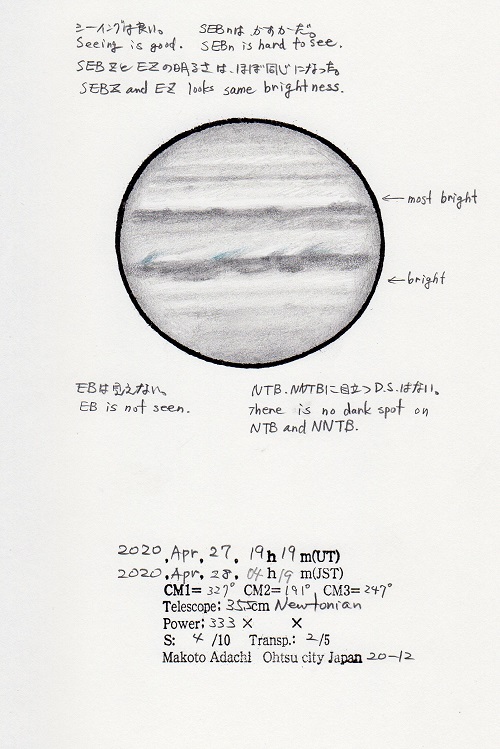 シーイングは良い。 SEBnは かすかだ。
Seeing is good. SEBn is hard to see.
SEBZと EZの明るさは、ほぼ同じになった。
SEBZ and EZ looks same brightness.
← most bright
← bright
EBは見えない。 NTB. NNTBに目立つD.S.はない。
EB is not seen. There is no dark spot on
NTB and NNTB.
2020, Apr, 27, 19h 19m(UT)
2020, Apr, 28, 04h 19m(JST)
CM1= 327° CM2= 191° CM3= 247°
Telescope: 35.5cm Newtonian
Power: 333 × ×
S: 4 /10 Transp.: 2/5
Makoto Adachi Ohtsu city Japan 20-12